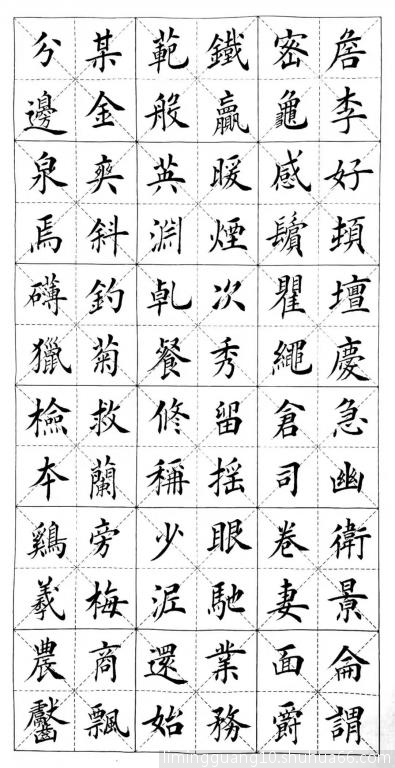 詹李好頓壇慶急幽衛景侖謂
密龜感鬢瞿繩倉司卷妻面爵
鐵贏暖煙次秀留摇眼馳業務
範般英淵乹餐修稱少泥還始
某金爽斜釣菊救蘭旁梅商飄
分邊泉焉礴獵檢本鷄羲農齾
limingguang10.shuhua66.com